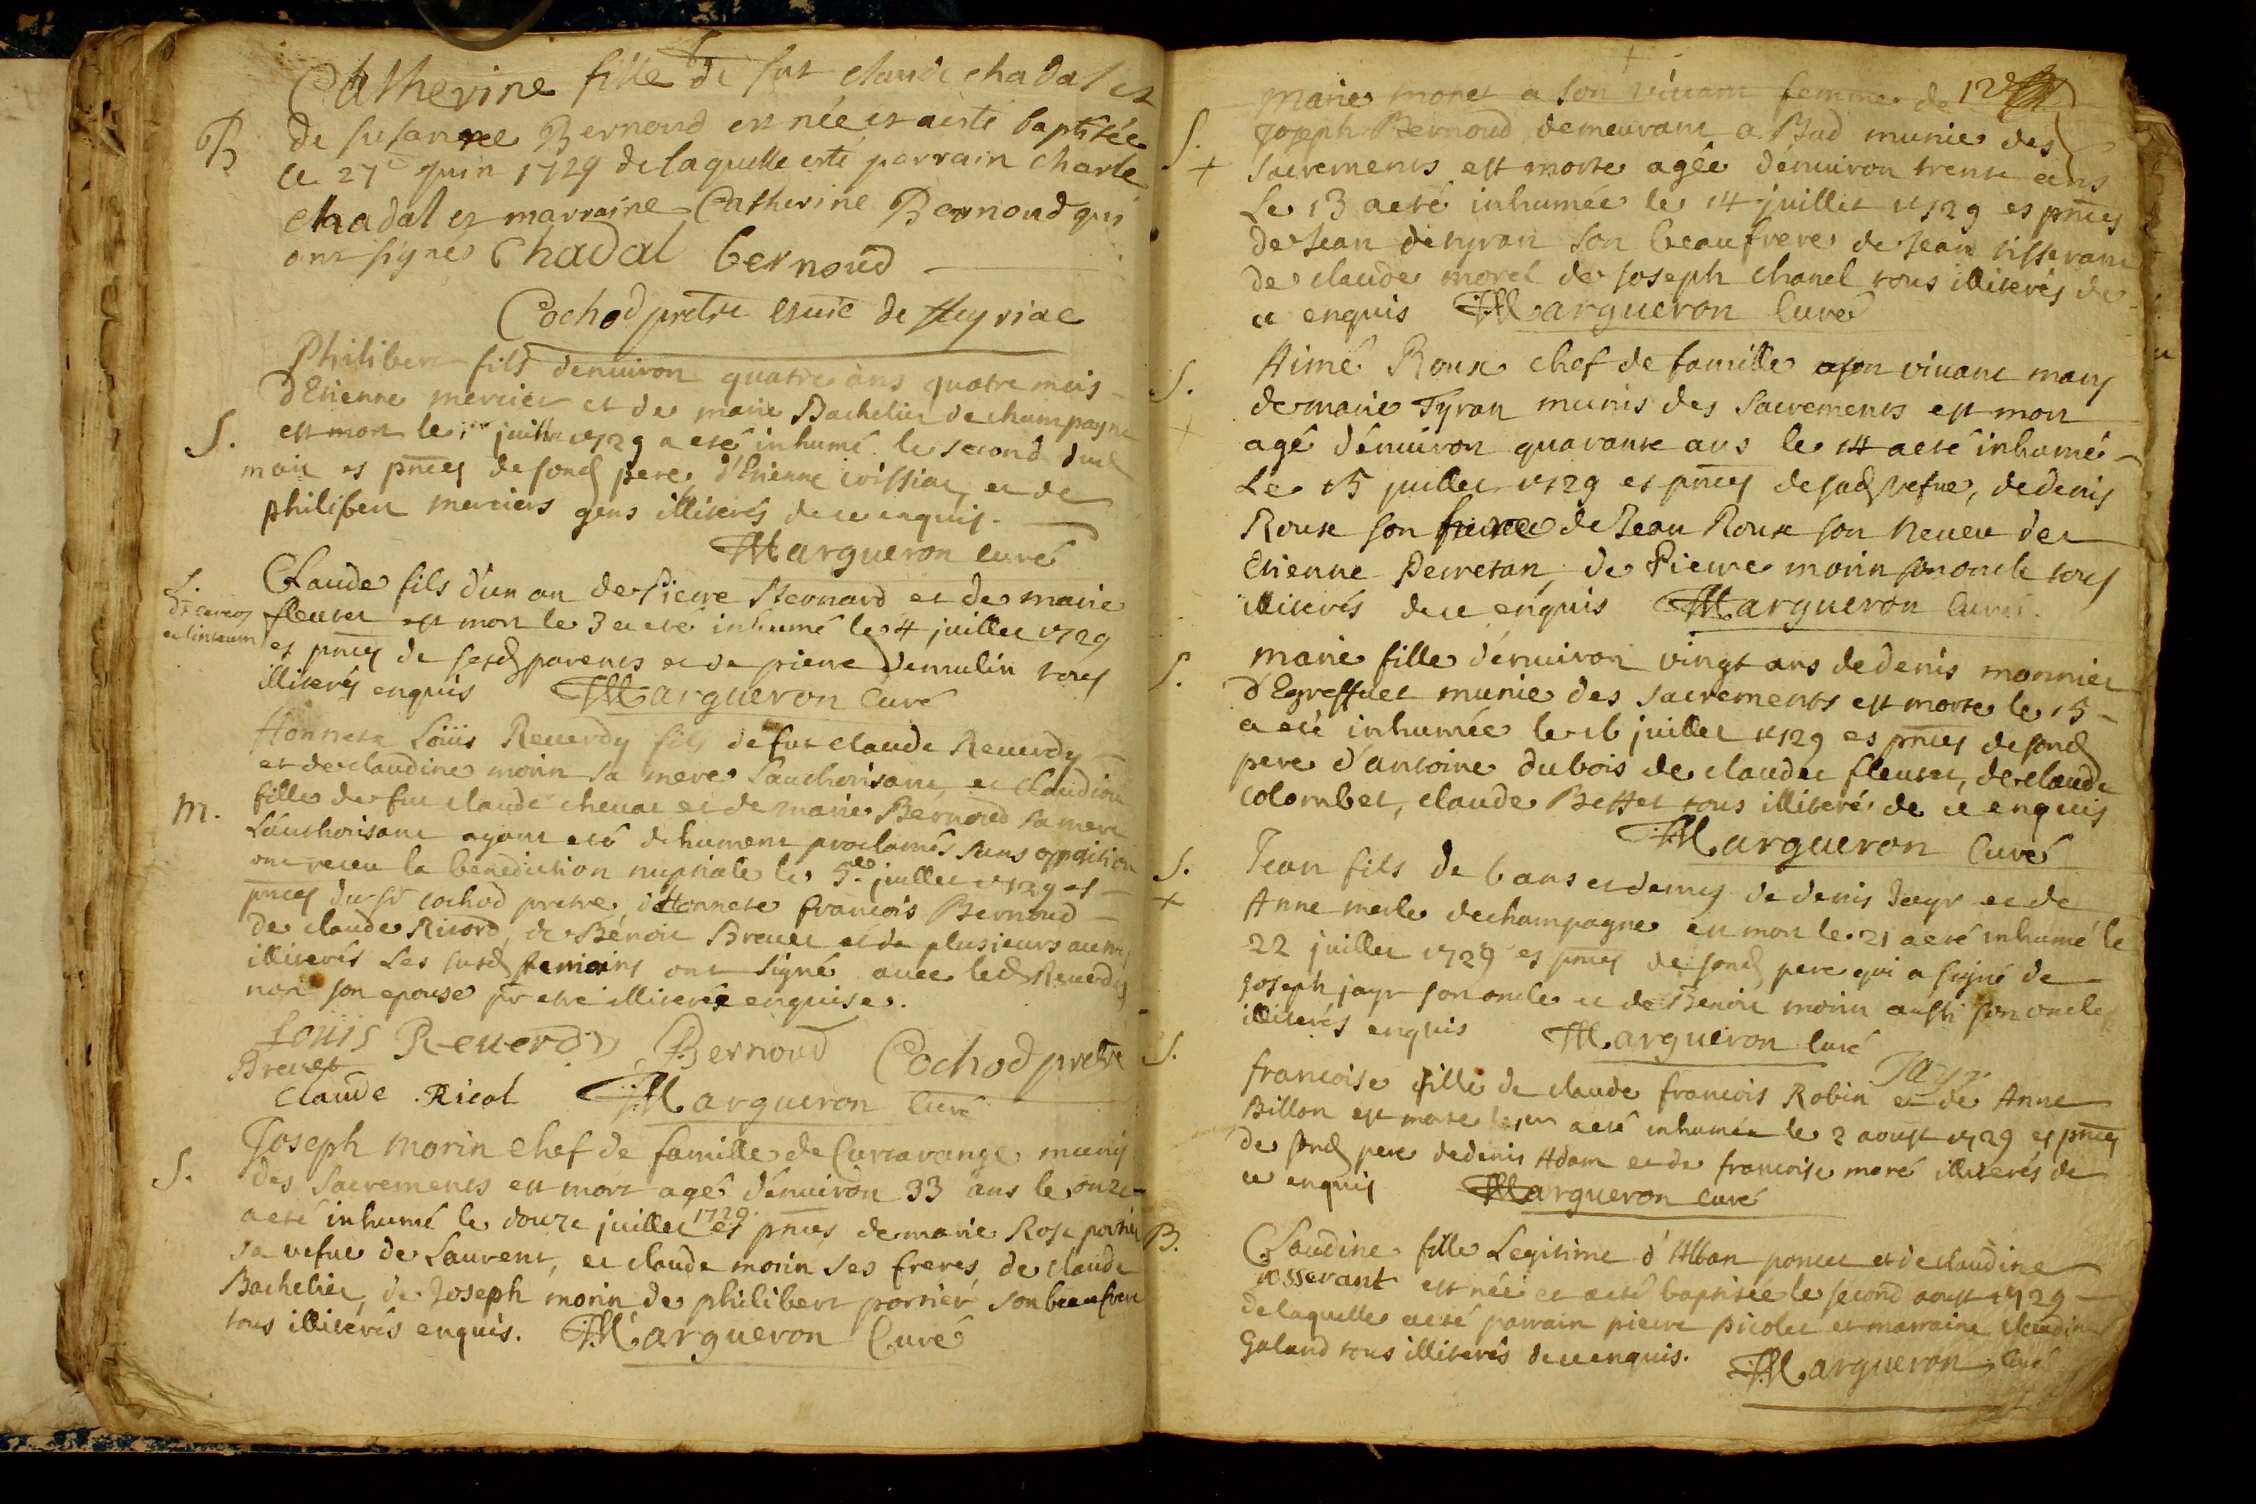 Catherine fille de fut claude chadal et
B de susanne Bernoud est née et a esté baptisée
le 27e juin 1729 de laquelle esté parrain charle
chadal et marraine Catherine Bernoud qui
ont signés Chadal bernoud
Cochod pretre de Heyriac
Philibert fils denuiron quatre ans quatre mois
d'Etienne mercier et de marie Bachelier de champagne
S. est mort le 1er juillet 1729 a eté inhumé le second dud
mois es pnces de sond pere, d'Etienne et de
philibert merciers gens illiterés de ce enquis.
Margueron curé
S. Claude fils d'un an de Pierre Bernard et de marie
fleuret est mort le 3 a eté inhumé le 4 juillet 1729
et linteum es pnces de sesd parents et de pierre demulin tous
illiterés enquis Margueron Curé
Honnete Loüis Reuerdy fils de fut claude Reuerdy
et de claudine morin sa mere l'authorisant, et Claudine
M. fille de fut claude cheuat et de marie Bernoud sa mere
l'authorisant ayant eté duhument proclamés sans opposition
ont receu la benediction nuptiale le 5e juillet 1729 es
pnces du sr cochod pretre d'Honnete francois Bernoud
de claude Ricord, de Bénoit Breuet et de plusieurs autres
illiterés Les susd temoins ont signé auec led Reuerdy
non son epouse pr etre illiterée enquise.
Loüis Reuerdy Bernoud Cochod pretre
Breuet
claude Ricol Margueron Curé
Joseph morin chef de famille de Curtarange muny
S. des Sacrements est mort agé d'enuiron 33 ans le onze
a eté inhumé le douze juillet 1729 es pnces de marie Rose
sa vefue de Laurent, et claude morin ses freres de claude
Bachelier, de Joseph morin de philibert portier son beaufrere
tous illiterés enquis. Margueron Curé
marie monet a son viuant femme de 12
S. Joseph Bernoud demeurant a Bud munie des
+ sacrements est morte agée d'enuiron trente ans
Le 13 a eté inhumée le 14 juillet 1729 es pnces
de Jean detyran son beaufrere de Jean tisserant
de claude morel de Joseph chanel tous illiterés de
ce enquis Margueron Curé
S. Aimé Roux chef de famille a son viuant mary
de marie Tyran munis des Sacrements est mort
+ agé d'enuiron quarante ans le 14 a eté inhumé
Le 15 juillet 1729 es pnces de sad vefue, de denis
Roux son frere de Jean Roux son neueu de
Etienne Perretan, de Pierre morin son oncle tous
illiterés de ce enquis Margueron Curé.
S. marie fille d'enuiron vingt ans de denis monnier
d'Egreffuet munie des sacrements est morte le 15
a eté inhumée le 16 juillet 1729 es pnces de sond
pere d'antoine dubois de claude fleuret, de claude
colombet, claude Bettet tous illiterés de ce enquis
Margueron Curé
S. Jean fils de 6 ans et demy de denis Jayr et de
+ Anne merle de champagne est mort le 21 a eté inhumé le
22 juillet 1729 es pnces de sond pere qui a signé de
Joseph jayr son oncle et de Benoit morin aussi son oncle
illiterés enquis Margueron curé
Jayr
S. francoise fille de claude francois Robin et de Anne
Billon est morte le 1er a eté inhumée le 2 aoust 1729 es pnces
de sond pere de denis Adam et de francoise moré illiterés de
ce enquis Margueron curé
B. Claudine fille Legitime d'Alban poncet et de claudine
tisserant est née et a eté baptisée le second aoust 1729
de laquelle a eté parrain pierre picolet et marraine claudine
Galand tous illiterés de ce enquis. Margueron, curé